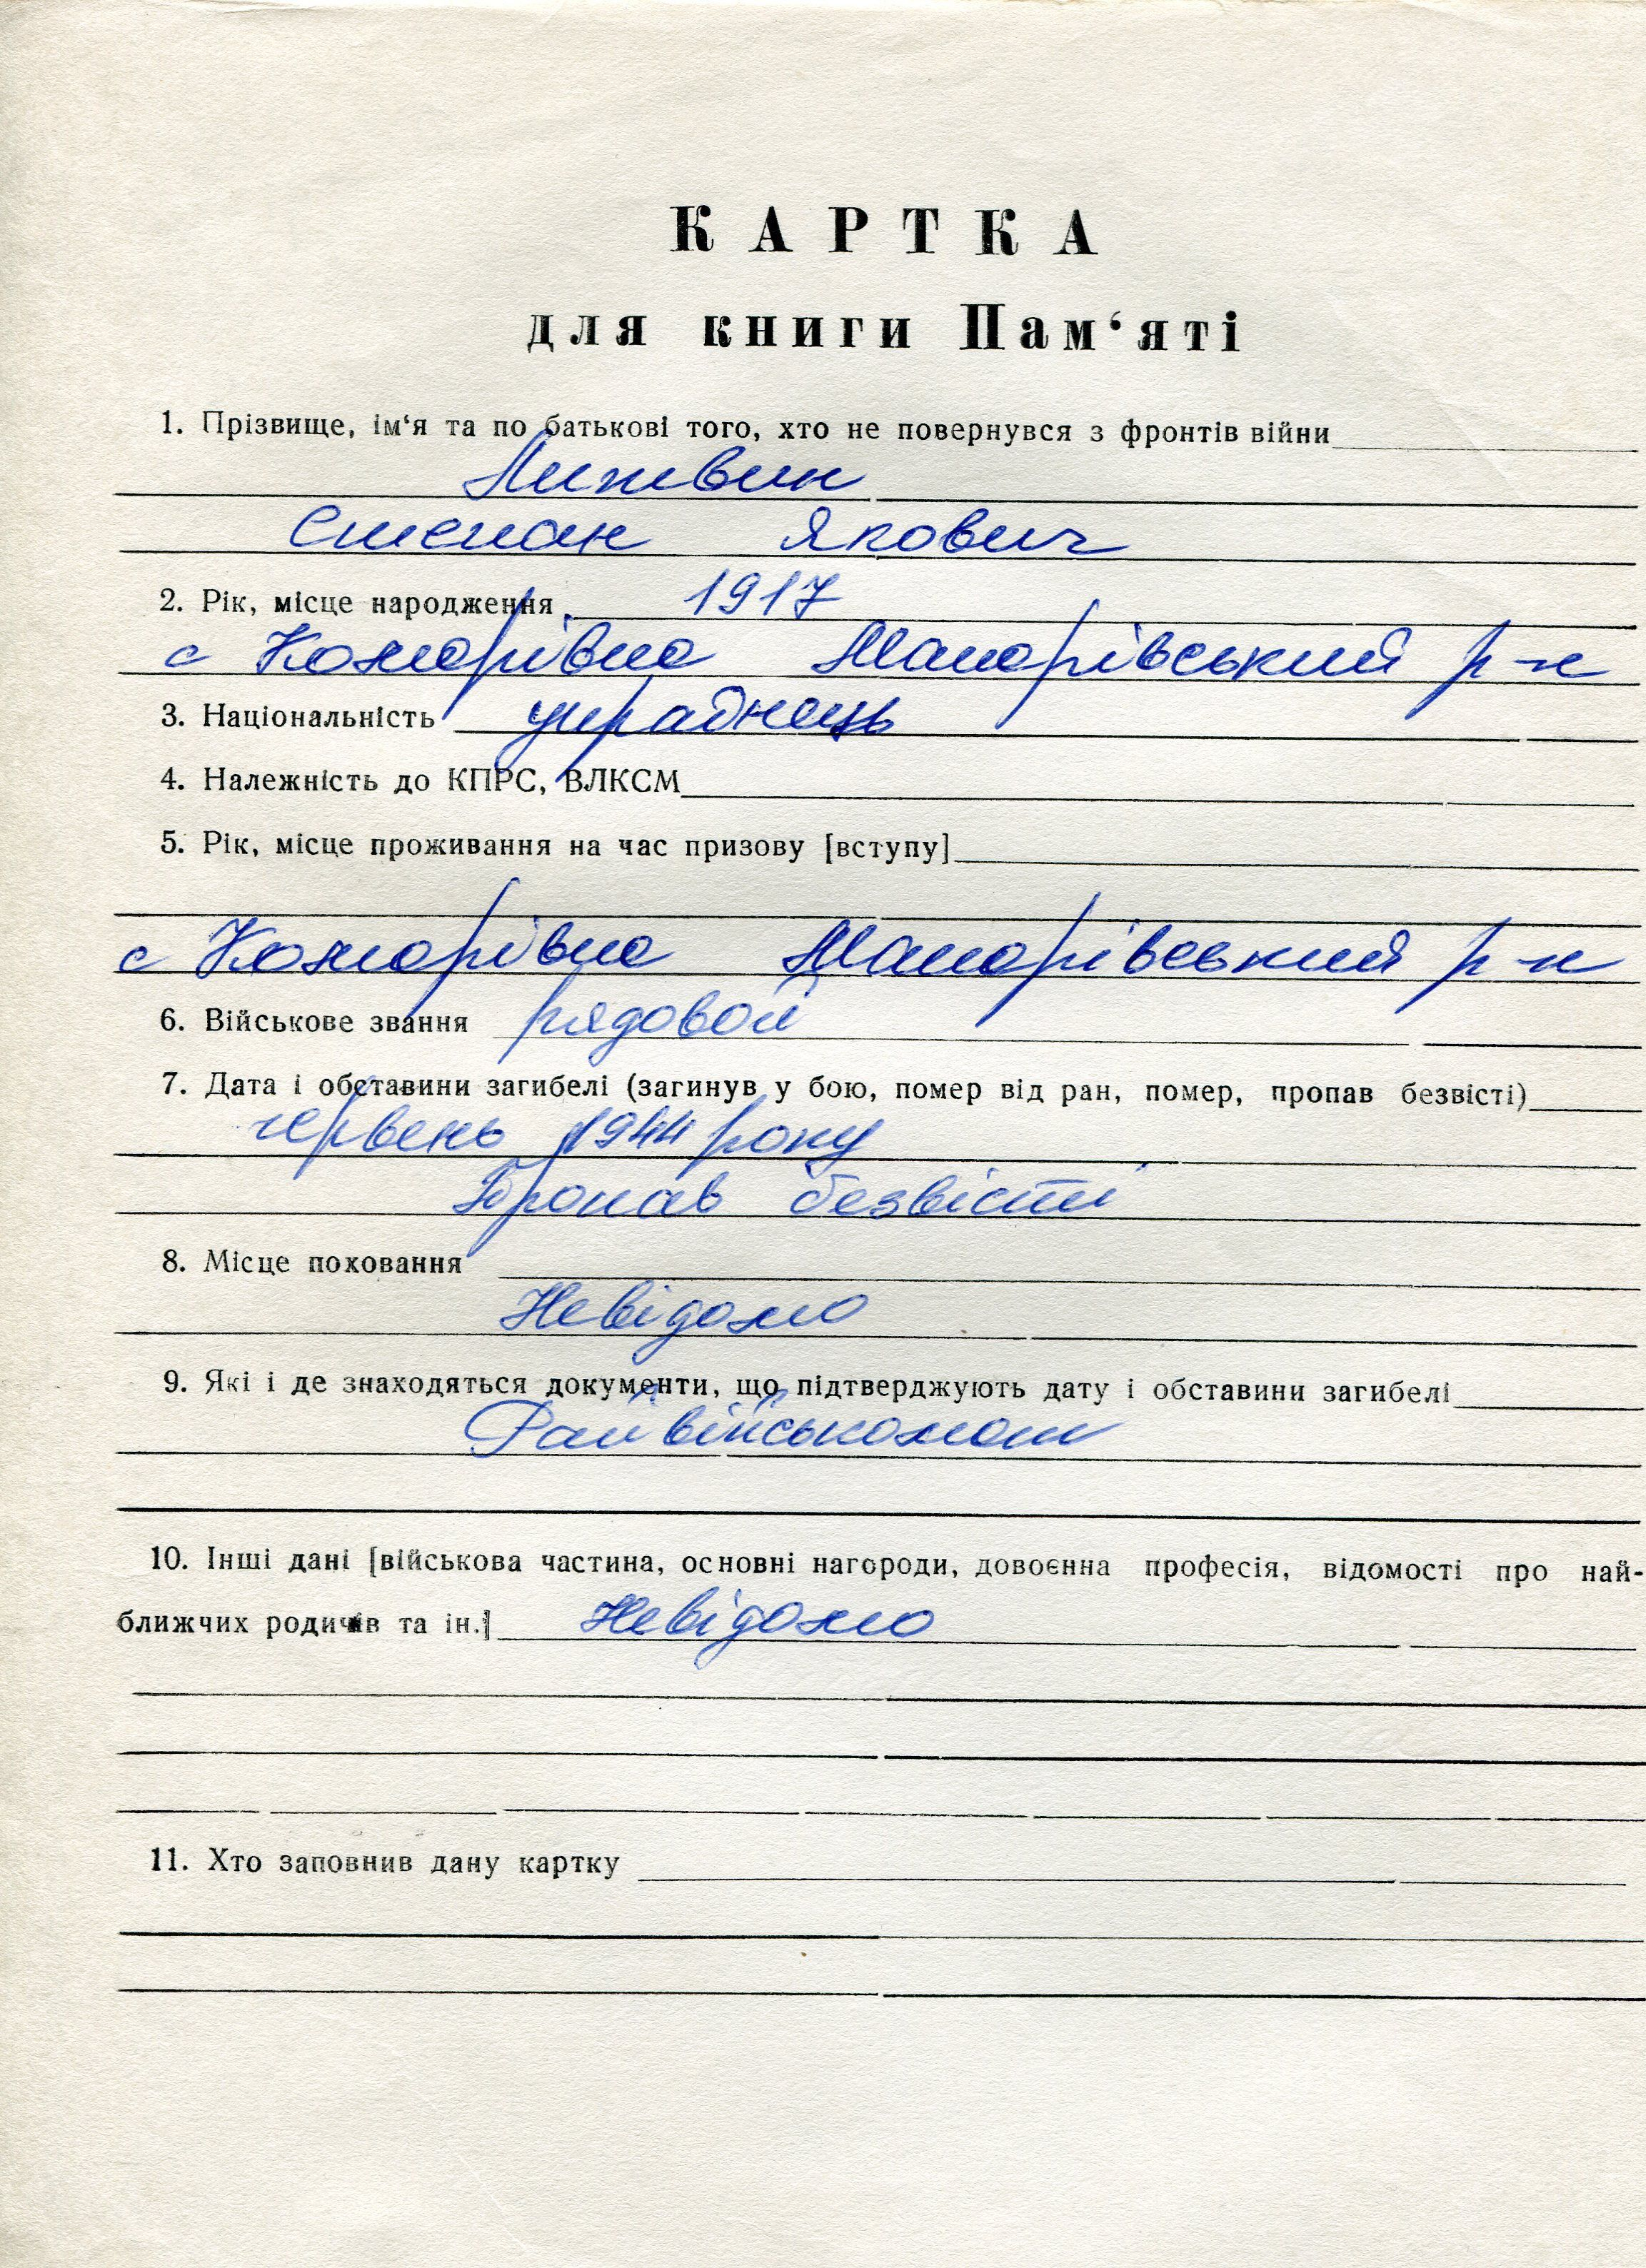 КАРТКА
для книги Пам‘яті
1. Прізвище, ім‘я та по батькові того, хто не повернувся з фронтів війни
Литвин
Степан Якович
2. Рік, місце народження 1917
с Комарівка Макарівський р-н
3. Національність українець
4. Належність до КПРС, ВЛКСМ
5. Рік, місце проживання на час призову [вступу]
с Комарівка Макарівський р-н
6. Військове звання рядовой
7. Дата і обставини загибелі (загинув у бою, помер від ран, помер, пропав безвісті)
червень 1944 року
Пропав безвісти
8. Місце поховання
Невідомо
9. Які і де знаходяться документи, що підтверджують дату і обставини загибелі
Райвійськомат
10. Інші дані [військова частина, основні нагороди, довоєнна професія, відомості про най-
ближчих родичів та ін.] Невідомо
11. Хто заповнив дану картку